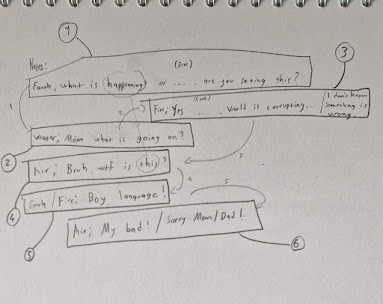 1
(Sin)
3
Notes:
Earth, what is happening? or ..... are you seeing this?
(Sin)
Fire; Yes ..... World is corrupting... / I don't know something is wrong.
1
2
Water; Mom what is going on?
2
3
Air; Bruh, wtf is this?
4
4
5
Earth / Fire; Boy, language!
Air; My bad! / Sorry Mom/Dad!..
5
6